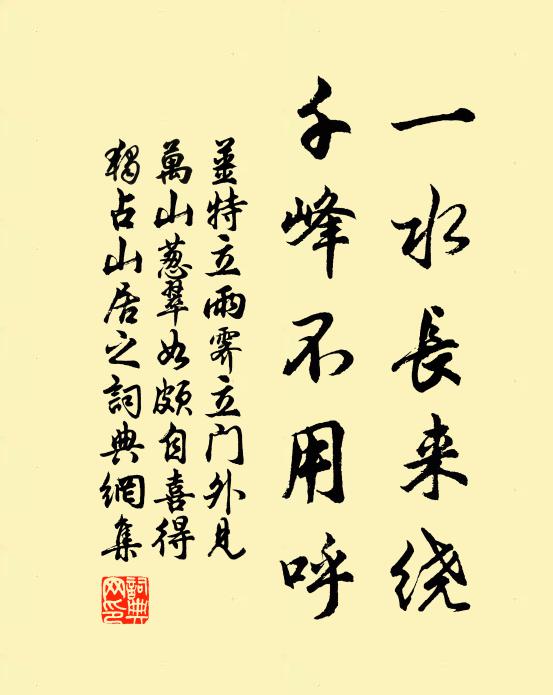 一水長来绕
千峰不用呼
姜特立雨霽立门外見
萬山葱翠如頗自喜得
獨占山居之詞典網集
詞典